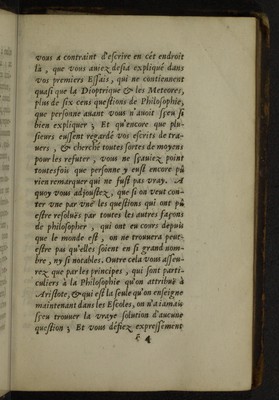 vous a contraint d'escrire en cét endroit
là, que vous auiez desia expliqué dans
vos premiers Essais, qui ne contiennent
quasi que la Dioptrique & les Meteores,
plus de six cens questions de Philosophie,
que personne auant vous n'auoit sceu si
bien expliquer ; Et qu'encore que plu-
sieurs eussent regardé vos escrits de tra-
uers, & cherché toutes sortes de moyens
pour les refuter, vous ne sçauiez point
toutesfois que personne y eust encore pû
rien remarquer qui ne fust pas vray. A
quoy vous adjoustez, que si on veut con-
ter vne par vne les questions qui ont pû
estre resoluës par toutes les autres façons
de philosopher, qui ont eu cours depuis
que le monde est, on ne trouuera peut-
estre pas qu'elles soient en si grand nom-
bre, ny si notables. Outre cela vous asseu-
rez que par les principes, qui sont parti-
culiers à la Philosophie qu'on attribuë à
Aristote, & qui est la seule qu'on enseigne
maintenant dans les Escoles, on n'a iamais
sceu trouuer la vraye solution d'aucune
question ; Et vous défiez expressément
é 4